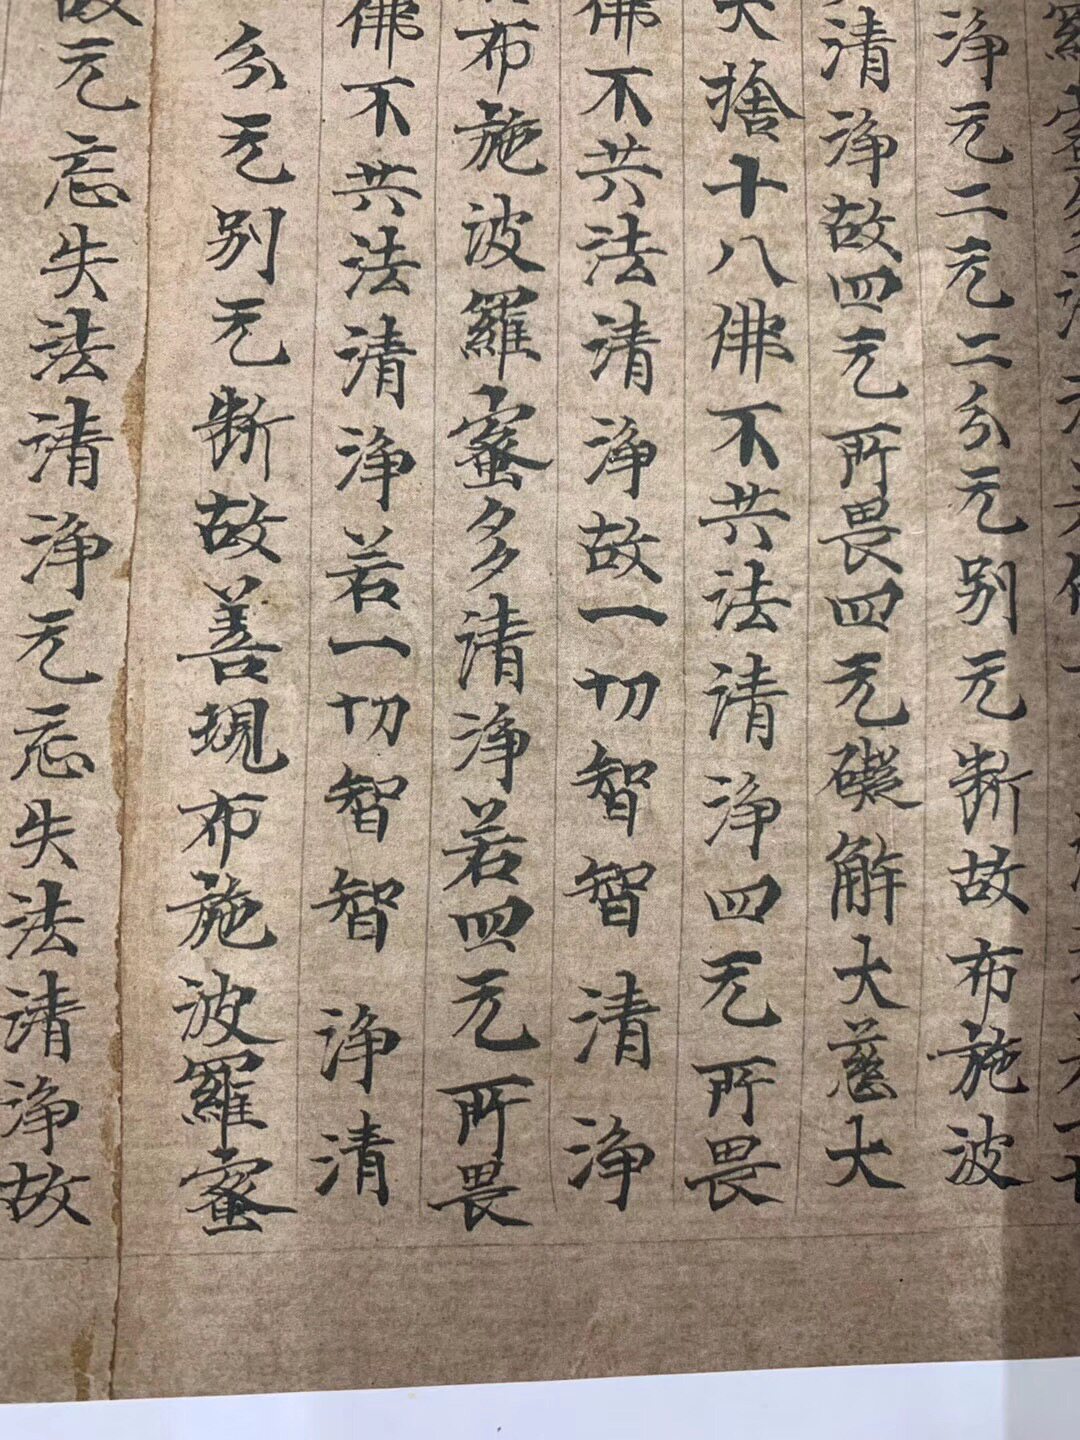 羅蜜多清
浄无二无二分无别无断故布施波
清浄故四无所畏四无礙解大慈大
大捨十八佛不共法清浄四无所畏
佛不共法清浄故一切智智清浄
布施波羅蜜多清浄若四无所畏
佛不共法清浄若一切智智浄清
分无别无断故善現布施波羅蜜
故无忘失法清浄无忘失法清浄故